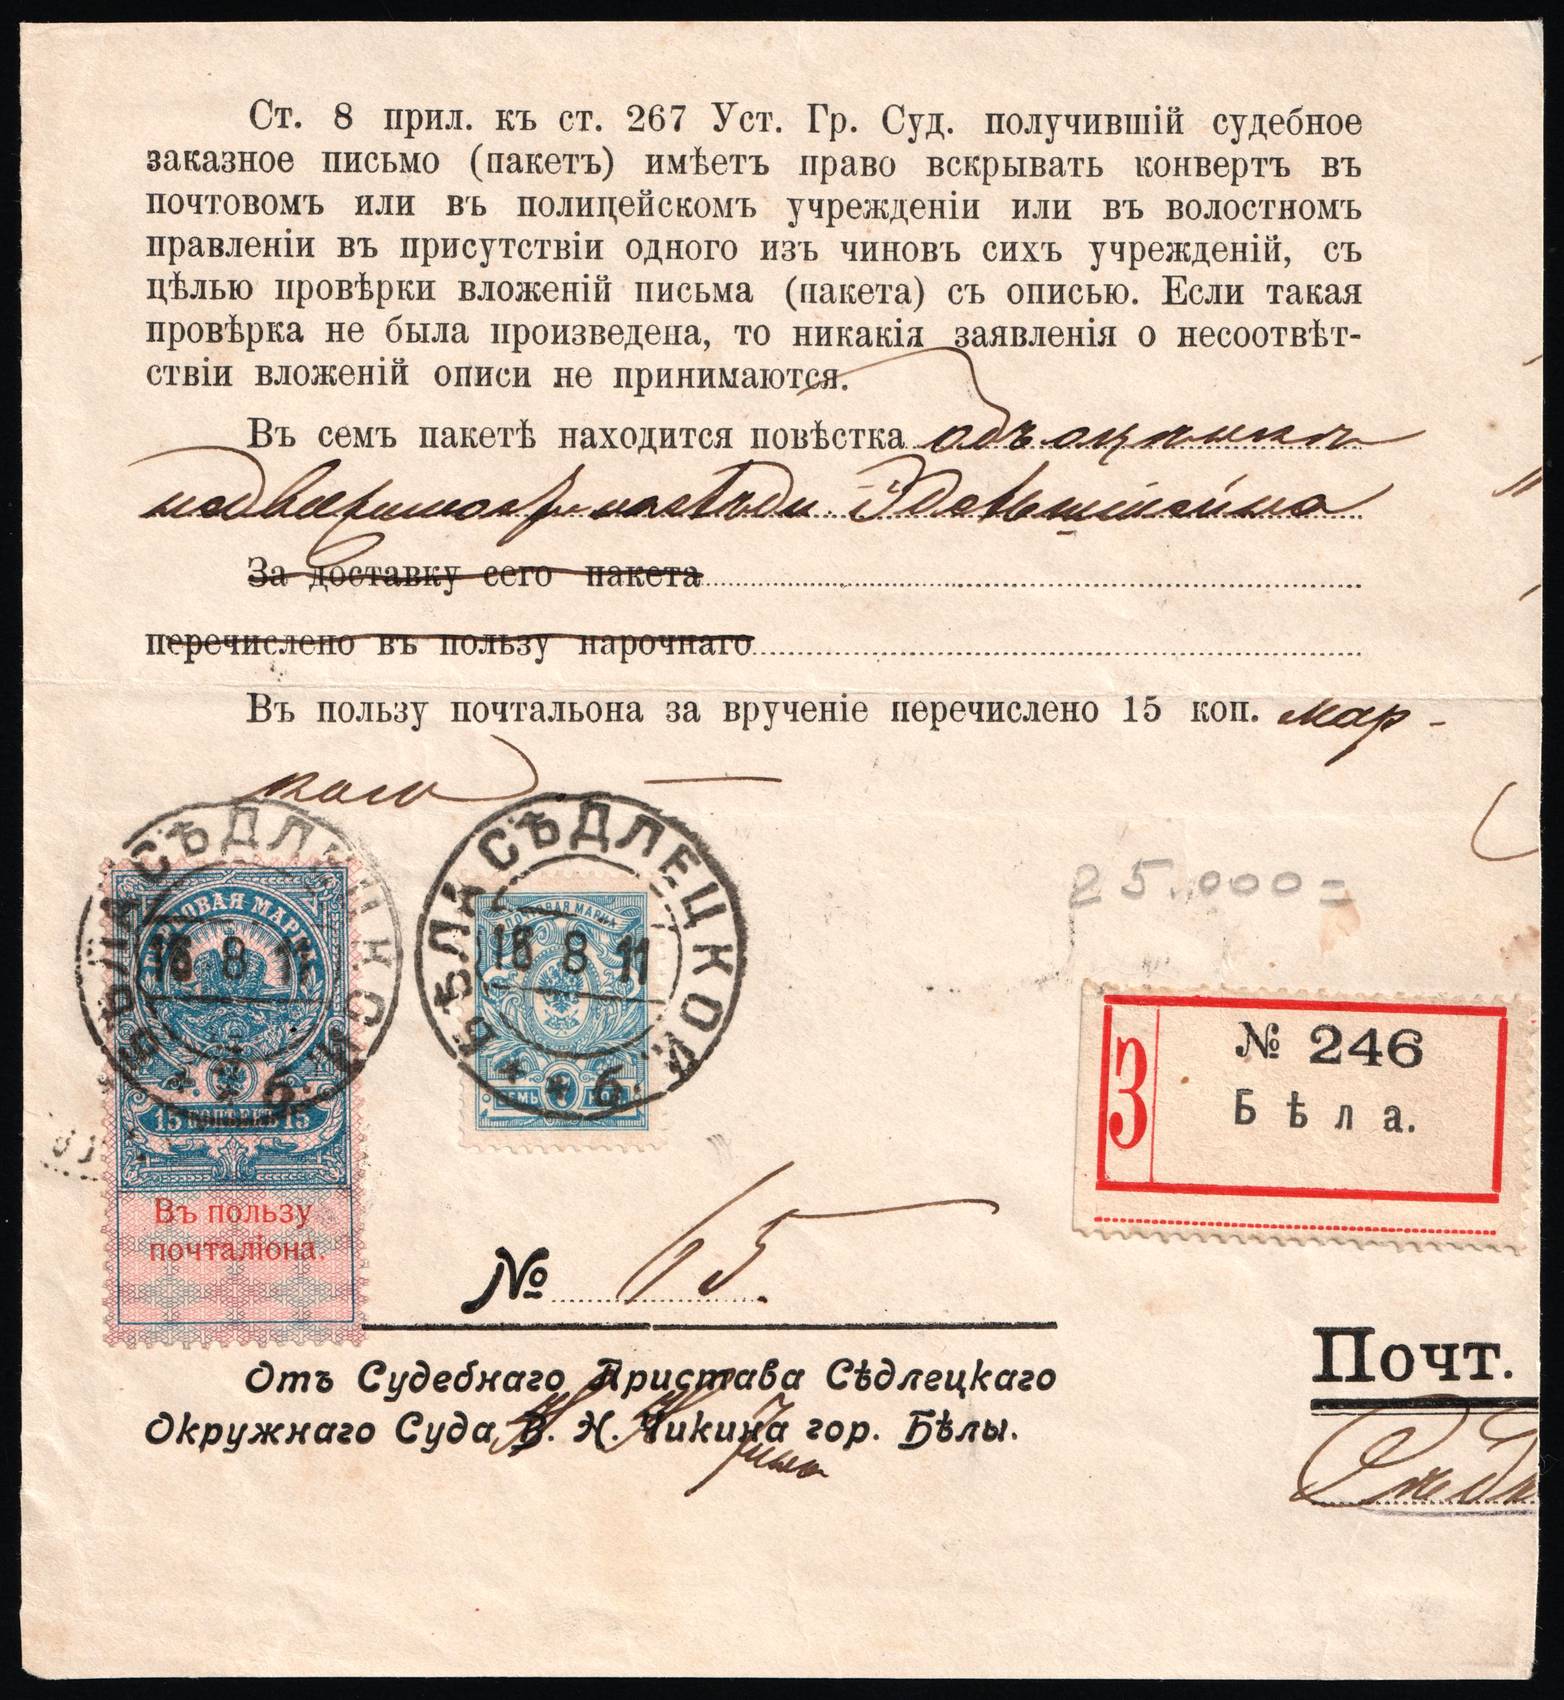 Ст. 8 прил. къ ст. 267 Уст. Гр. Суд. получившій судебное
заказное письмо (пакетъ) имѣетъ право вскрывать конвертъ въ
почтовомъ или въ полицейскомъ учрежденіи или въ волостномъ
правленіи въ присутствіи одного изъ чиновъ сихъ учрежденій, съ
цѣлью провѣрки вложеній письма (пакета) съ описью. Если такая
провѣрка не была произведена, то никакія заявленія о несоотвѣт-
ствіи вложеній описи не принимаются.
Въ семъ пакетѣ находится повѣстка объ оцѣнкѣ
За доставку сего пакета
перечислено въ пользу нарочнаго
Въ пользу почтальона за врученіе перечислено 15 коп. мар-
кою
БѢЛА СѢДЛЕЦКОЙ
16 8 11
* * б.
ГЕРБОВАЯ МАРКА
15 КОПѢЕКЪ 15
Въ пользу
почталіона.
БѢЛА СѢДЛЕЦКОЙ
16 8 11
* * б.
ПОЧТОВАЯ МАРКА
СЕМЬ 7 КОП.
25.000=
З
№ 246
Бѣла.
№ 65
Отъ Судебнаго Пристава Сѣдлецкаго
Окружнаго Суда В. Н. Чикина гор. Бѣлы.
Почт.